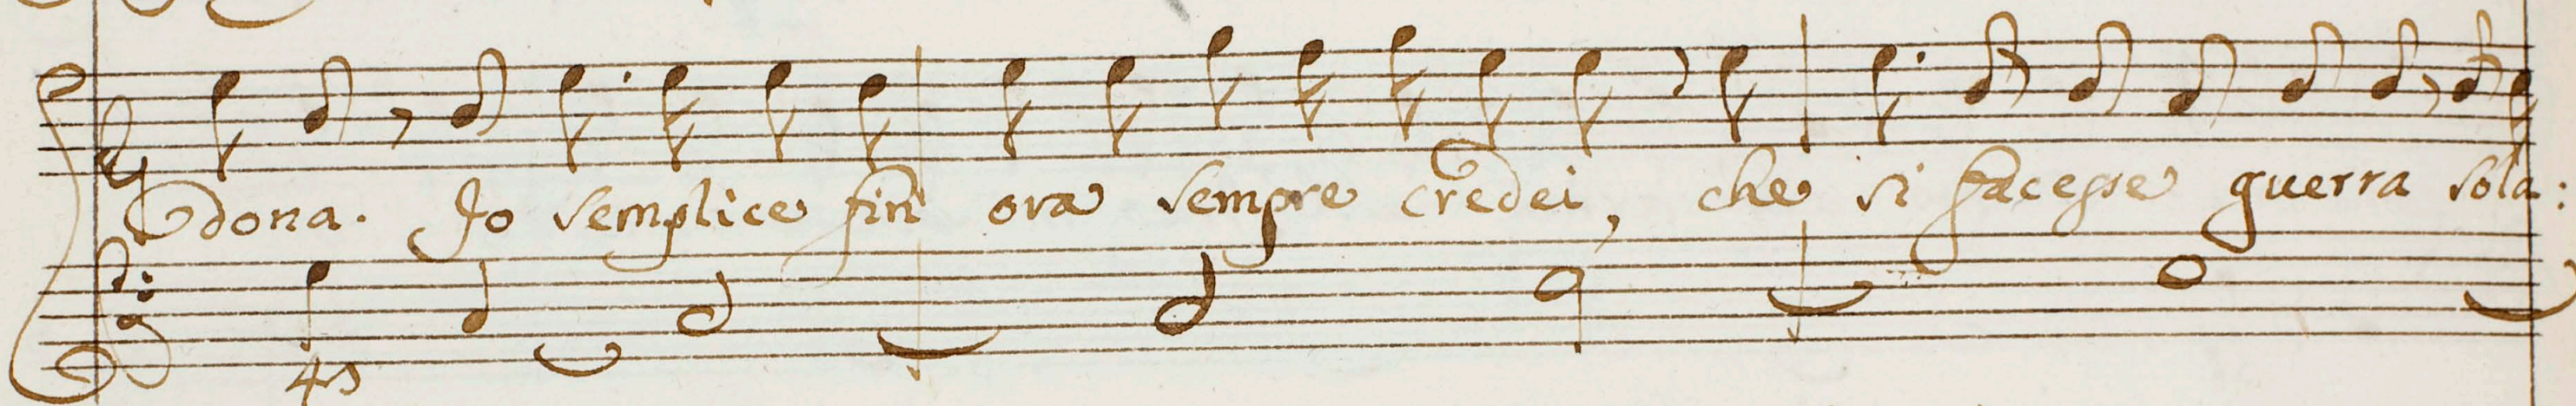 dona. Jo semplice fin ora sempre credei, che si facesse guerra sola:
43